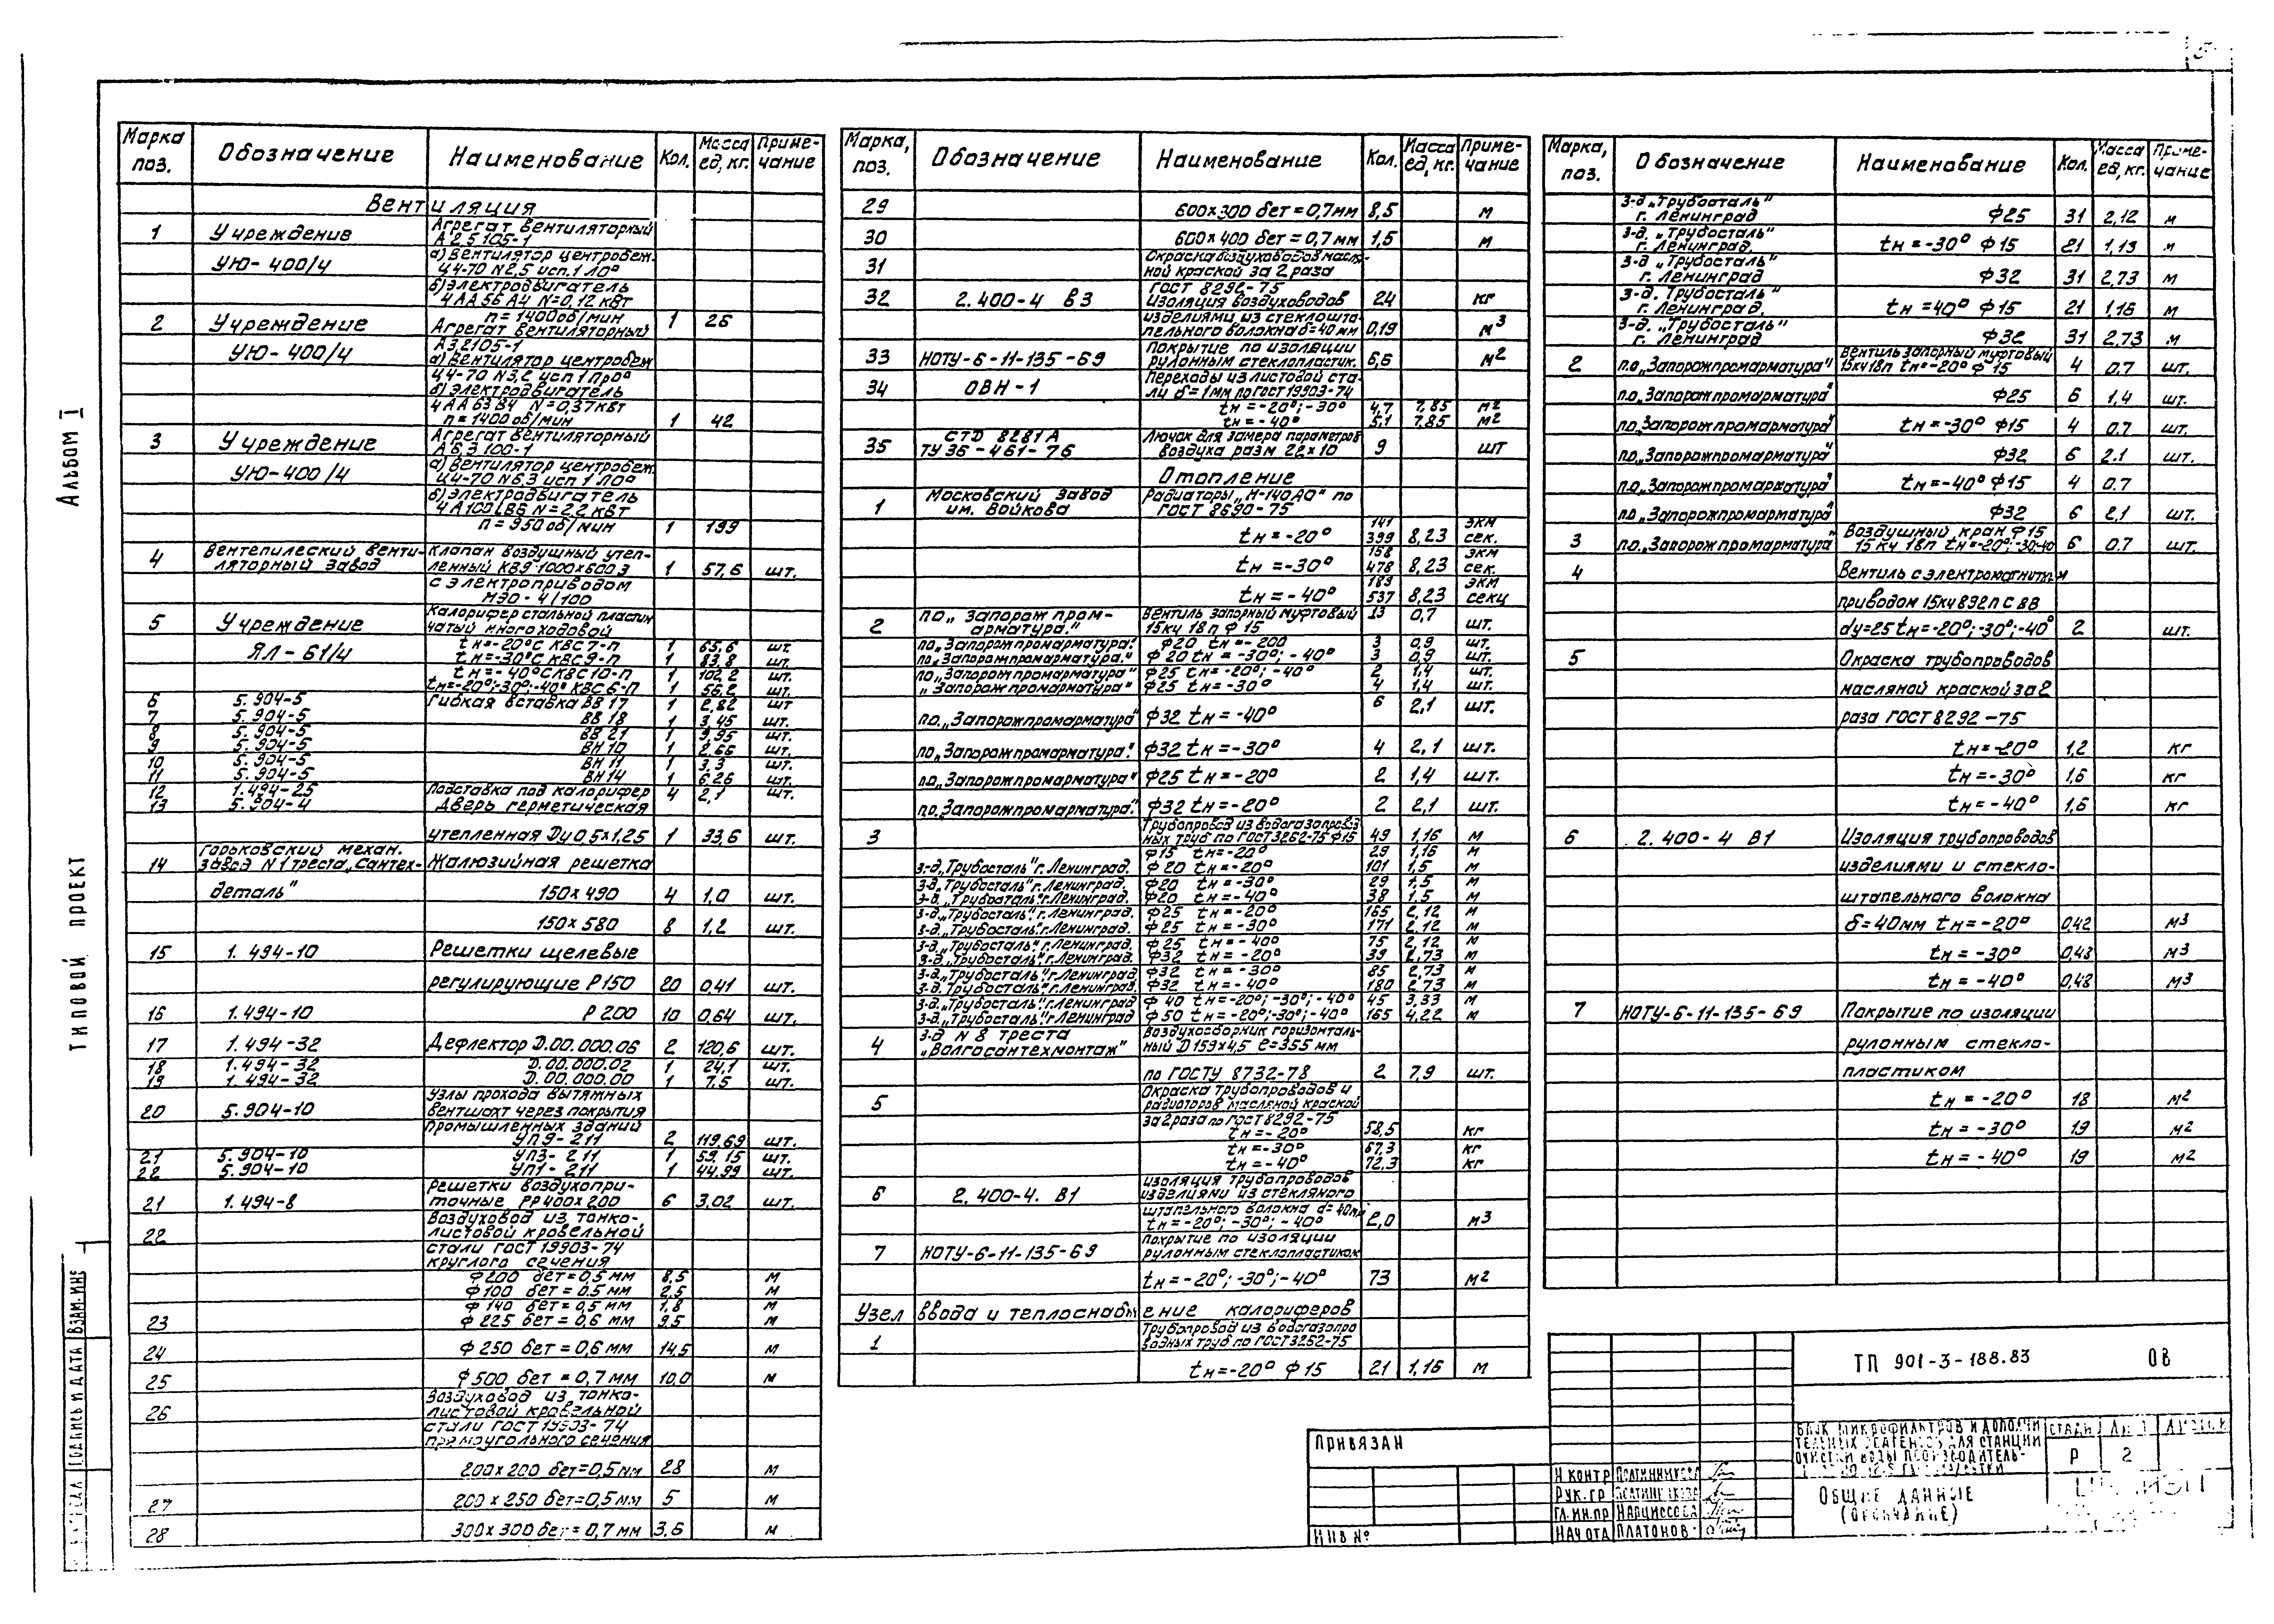 Альбом I
Типовой проект
Марка поз. Обозначение Наименование Кол. Масса ед, кг. Примечание
Вентиляция
1 Учреждение Агрегат вентиляторный
А 2,5 105-1
УЮ-400/4 а) Вентилятор центробеж.
Ц4-70 N2,5 исп.1 Л0°
б) Электродвигатель
4АА56А4 N=0,12 кВт
n=1400 об/мин 1 26
2 Учреждение Агрегат вентиляторный
А3,2105-1
УЮ-400/4 а) Вентилятор центробеж
Ц4-70 N3,2 исп 1 Пр0°
б) Электродвигатель
4АА63В4 N=0,37кВт
n=1400 об/мин 1 42
3 Учреждение Агрегат вентиляторный
А6,3 100-1
УЮ-400/4 а) Вентилятор центробеж.
Ц4-70 N6,3 исп 1 Л0°
б) Электродвигатель
4А100LВ6 N=2,2 кВт
n=950 об/мин 1 199
4 Вентепилеский венти- Клапан воздушный утеп-
ляторный завод ленный КВЭ 1000х600 Э 1 57,6 шт.
с электроприводом
МЭО-4/100
5 Учреждение Калорифер стальной пластин
чатый многоходовой
ЯЛ-61/4 tн=-20°С КВС7-П 1 65,6 шт
tн=-30°С КВС9-П 1 83,8 шт.
tн=-40°С КВС10-П 1 102,2 шт.
tн=-20°;-30°;-40° КВС6-П 1 56,2 шт.
6 5.904-5 Гибкая вставка ВВ 17 1 2,82 шт
7 5.904-5 ВВ 18 1 3,45 шт.
8 5.904-5 ВВ 21 1 9,95 шт.
9 5.904-5 ВН 10 1 2,66 шт.
10 5.904-5 ВН 11 1 3,3 шт.
11 5.904-5 ВН 14 1 6,26 шт.
12 1.494-25 Подставка под калорифер 4 2,1 шт.
13 5.904-4 Дверь герметическая
утепленная Ду 0,5х1,25 1 33,6 шт.
14 Горьковский механ.
завод N1 треста „Сантех- Жалюзийная решетка
деталь" 150х490 4 1,0 шт.
150х580 8 1,2 шт.
15 1.494-10 Решетки щелевые
регулирующие Р150 20 0,41 шт.
16 1.494-10 Р 200 10 0,64 шт.
17 1.494-32 Дефлектор Д.00.000.06 2 120,6 шт.
18 1.494-32 Д.00.000.02 1 24,1 шт.
19 1.494-32 Д.00.000.00 1 7,5 шт.
20 5.904-10 Узлы прохода вытяжных
вентшахт через покрытия
промышленных зданий
УП9-211 2 119,69 шт.
21 5.904-10 УП3-211 1 59,15 шт.
22 5.904-10 УП1-211 1 44,99 шт.
21 1.494-8 Решетки воздухопри-
точные РР400х200 6 3,02 шт.
22 Воздуховод из тонко-
листовой кровельной
стали ГОСТ 19903-74
круглого сечения
ф200 бет=0,5 мм 8,5 м
ф100 бет=0,5 мм 2,5 м
ф140 бет=0,5 мм 1,8 м
23 ф225 бет=0,6 мм 9,5 м
24 ф250 бет=0,6 мм 14,5 м
25 ф500 бет=0,7 мм 10,0 м
26 Воздуховод из тонко-
листовой кровельной
стали ГОСТ 19903-74
прямоугольного сечения
200х200 бет=0,5 мм 28 м
27 200х250 бет=0,5 мм 5 м
28 300х300 бет=0,7 мм 3,6 м
Марка, поз. Обозначение Наименование Кол. Масса ед, кг. Примечание
29 600х300 бет=0,7мм 8,5 м
30 600х400 бет=0,7мм 1,5 м
31 Окраска воздуховодов масля-
ной краской за 2 раза
ГОСТ 8292-75
32 2.400-4 В3 Изоляция воздуховодов 24 кг
изделиями из стеклошта-
пельного волокна б=40мм 0,19 м3
33 НОТУ-6-11-135-69 Покрытие по изоляции
рулонным стеклопластик. 6,6 м2
34 ОВН-1 Переходы из листовой ста-
ли б=1мм по ГОСТ 19903-74
tн=-20°;-30° 4,7 7,85 м2
tн=-40° 5,1 7,85 м2
35 СТД 8281А
ТУ 36-461-76 Лючок для замера параметров
воздуха разм 22х10 9 шт
Отопление
1 Московский завод
им. Войкова Радиаторы „Н-140АО" по
ГОСТ 8690-75
tн=-20° 141 399 8,23 экм сек.
tн=-30° 168 478 8,23 экм сек.
tн=-40° 189 537 8,23 экм секц
2 по „Запорож пром-
арматура." Вентиль запорный муфтовый
15кч 18п ф15 13 0,7 шт.
по „Запорожпромарматура." ф20 tн=-200 3 0,9 шт.
по „Запорожпромарматура." ф20 tн=-30°;-40° 3 0,9 шт.
по „Запорожпромарматура" ф25 tн=-20°;-40° 2 1,4 шт.
„Запорожпромарматура" ф25 tн=-30° 4 1,4 шт.
п.о. „Запорожпромарматура" ф32 tн=-40° 6 2,1 шт.
по. „Запорожпромарматура." ф32 tн=-30° 4 2,1 шт.
по. „Запорожпромарматура" ф25 tн=-20° 2 1,4 шт.
по. „Запорожпромарматура." ф32 tн=-20° 2 2,1 шт.
3 Трубопровод из водогазопровод
ных труб по ГОСТ 3262-75 ф15 49 1,16 м
ф15 tн=-20° 29 1,16 м
з-д „Трубосталь" г. Ленинград. ф20 tн=-20° 101 1,5 м
з-д „Трубосталь" г. Ленинград. ф20 tн=-30° 29 1,5 м
з-д. „Трубосталь" г. Ленинград. ф20 tн=-40° 38 1,5 м
з-д „Трубосталь" г. Ленинград. ф25 tн=-20° 165 2,12 м
з-д „Трубосталь" г. Ленинград. ф25 tн=-30° 171 2,12 м
з-д. „Трубосталь" г. Ленинград. ф25 tн=-40° 75 2,12 м
з-д „Трубосталь" г. Ленинград. ф32 tн=-20° 39 2,73 м
з-д „Трубосталь" г. Ленинград ф32 tн=-30° 85 2,73 м
з-д. „Трубосталь" г. Ленинград. ф32 tн=-40° 180 2,73 м
з-д „Трубосталь" г. Ленинград ф40 tн=-20°;-30°;-40° 45 3,33 м
з-д „Трубосталь" г. Ленинград ф50 tн=-20°;-30°;-40° 165 4,22 м
4 з-д N 8 треста
„Волгосантехмонтаж" Воздухосборник горизонталь-
ный D159х4,5 е=355 мм
по ГОСТУ 8732-78 2 7,9 шт.
5 Окраска трубопроводов и
радиаторов масляной краской
за 2 раза по ГОСТ 8292-75
tн=-20° 58,5 кг
tн=-30° 67,3 кг
tн=-40° 72,3 кг
6 2.400-4. В1 Изоляция трубопроводов
изделиями из стекляного
штапельного волокна d=40мм
tн=-20°;-30°;-40° 2,0 м3
7 НОТУ-6-11-135-69 Покрытие по изоляции
рулонным стеклопластиком
tн=-20°;-30°;-40° 73 м2
Узел ввода и теплоснабжение калориферов
1 Трубопровод из водогазопро
водных труб по ГОСТ 3262-75
tн=-20° ф15 21 1,16 м
Марка, поз. Обозначение Наименование Кол. Масса ед, кг. Примечание
з-д „Трубосталь"
г. Ленинград ф25 31 2,12 м
з-д. „Трубосталь"
г. Ленинград. tн=-30° ф15 21 1,13 м
з-д „Трубосталь"
г. Ленинград ф32 31 2,73 м
з-д. Трубосталь"
г. Ленинград. tн=40° ф15 21 1,16 м
з-д. „Трубосталь"
г. Ленинград ф32 31 2,73 м
2 п.о „Запорожпромарматура" Вентиль запорный муфтовый
15кч18п tн=-20° ф15 4 0,7 шт.
п.о. „Запорожпромарматура" ф25 6 1,4 шт.
по „Запорожпромарматура" tн=-30° ф15 4 0,7 шт.
по „Запорожпромарматура" ф32 6 2.1 шт.
п.о „Запорожпромарматура" tн=-40° ф15 4 0,7
по „Запорожпромарматура" ф32 6 2,1 шт.
3 по. „Запорожпромарматура" Воздушный кран ф15
15 кч 18п tн=-20°;-30;40 6 0,7 шт.
4 Вентиль с электромагнитным
приводом 15кч 892п С ВВ
dу=25 tн=-20°;-30°;-40° 2 шт.
5 Окраска трубопроводов
масляной краской за 2
раза ГОСТ 8292-75
tн=-20° 1,2 кг
tн=-30° 1,6 кг
tн=-40° 1,6 кг
6 2.400-4 В1 Изоляция трубопроводов
изделиями и стекло-
штапельного волокна
б=40мм tн=-20° 0,42 м3
tн=-30° 0,43 м3
tн=-40° 0,48 м3
7 НОТУ-6-11-135-69 Покрытие по изоляции
рулонным стекло-
пластиком
tн=-20° 18 м2
tн=-30° 19 м2
tн=-40° 19 м2
Привязан
Инв №
ТП 901-3-188.83 ОВ
Блок микрофильтров и дополни
тельных реагентов для станции
очистки воды производитель-
Стадия Лист Листов
Р 2
Общие данные
(окончание)
Н контр
Рук. гр
Гл. ин. пр Нарциссова
Нач отд Платонов
Подпись и дата
Взам. инв